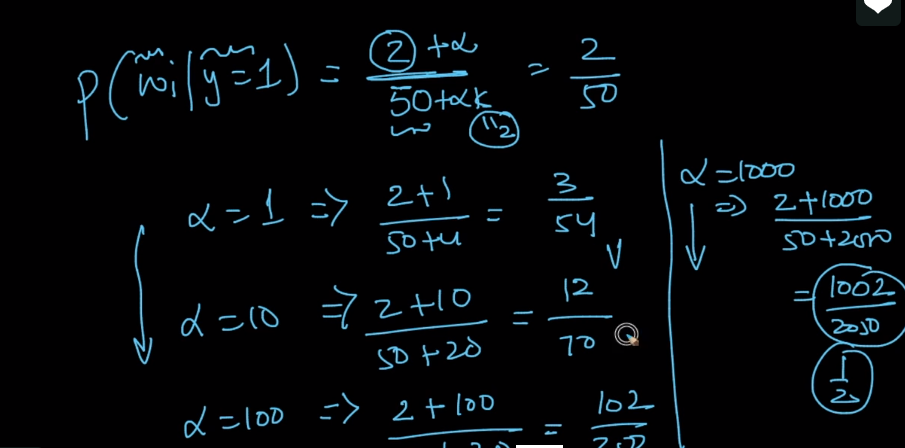 P(wi|y=1) = 2+α / 50+αk = 2/50
"2
α=1 ⇒ 2+1 / 50+4 = 3/54
α=10 ⇒ 2+10 / 50+20 = 12/70
α=100 ⇒ 2+100 = 102
α=1000
⇒ 2+1000 / 50+2000
= 1002/2050
1/2